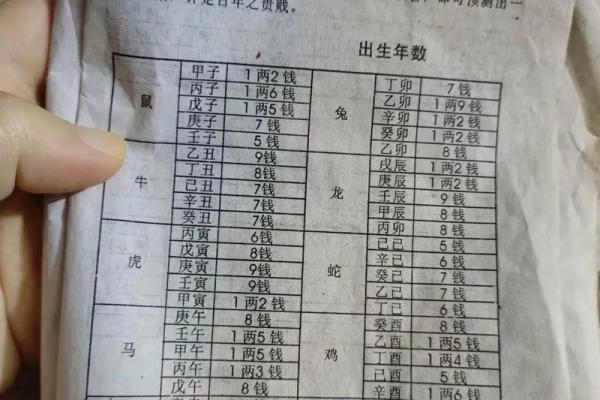 评定百年之贵贱。
即可预测出一
出生年数
鼠
甲子 1两2钱
丙子 1两6钱
戊子 1两5钱
庚子 7钱
壬子 5钱
牛
乙丑 9钱
丁丑 8钱
己丑 7钱
辛丑 7钱
癸丑 7钱
虎
丙寅 6钱
戊寅 8钱
庚寅 9钱
壬寅 9钱
甲寅 1两2钱
马
庚午 8钱
壬午 1两5钱
甲午 1两5钱
丙午 1两3钱
戊午 8钱
兔
丁卯 7钱
乙卯 1两9钱
辛卯 1两2钱
癸卯 1两2钱
乙卯 8钱
龙
戌辰 1两2钱
庚辰 1两2钱
壬辰 9钱
甲辰 8钱
丙卯 8钱
蛇
己已 5钱
辛已 6钱
癸已 7钱
乙已 7钱
丁已 6钱
鸡
癸酉 8钱
乙酉 1两5钱
丁酉 1两4钱
己酉 5钱
辛酉 1两6钱